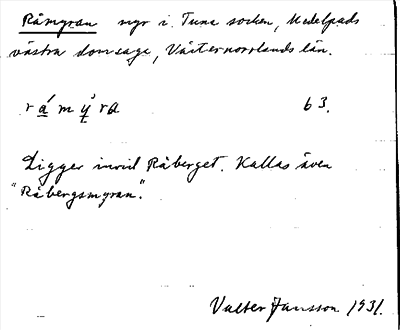 Råmyran myr i Tuna socken, Medelpads
västra domsaga, Västernorrlands län.
rámy̆ra 63.
Ligger invid Råberget. Kallas även
"Råbergsmyran".
Valter Jansson 1931.